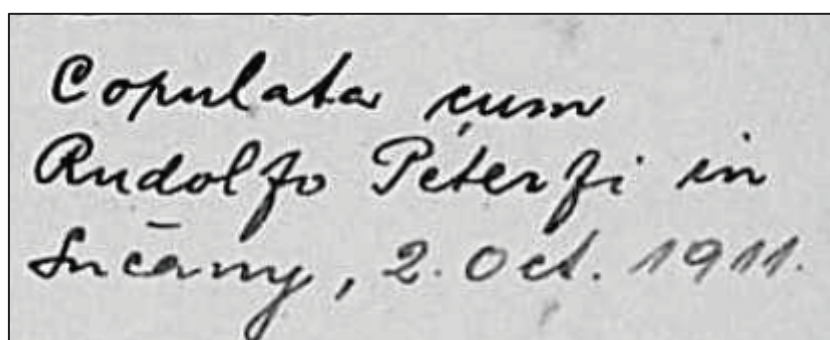 Copulata cum
Rudolfo Péterfi in
Sučany, 2. Oct. 1911.